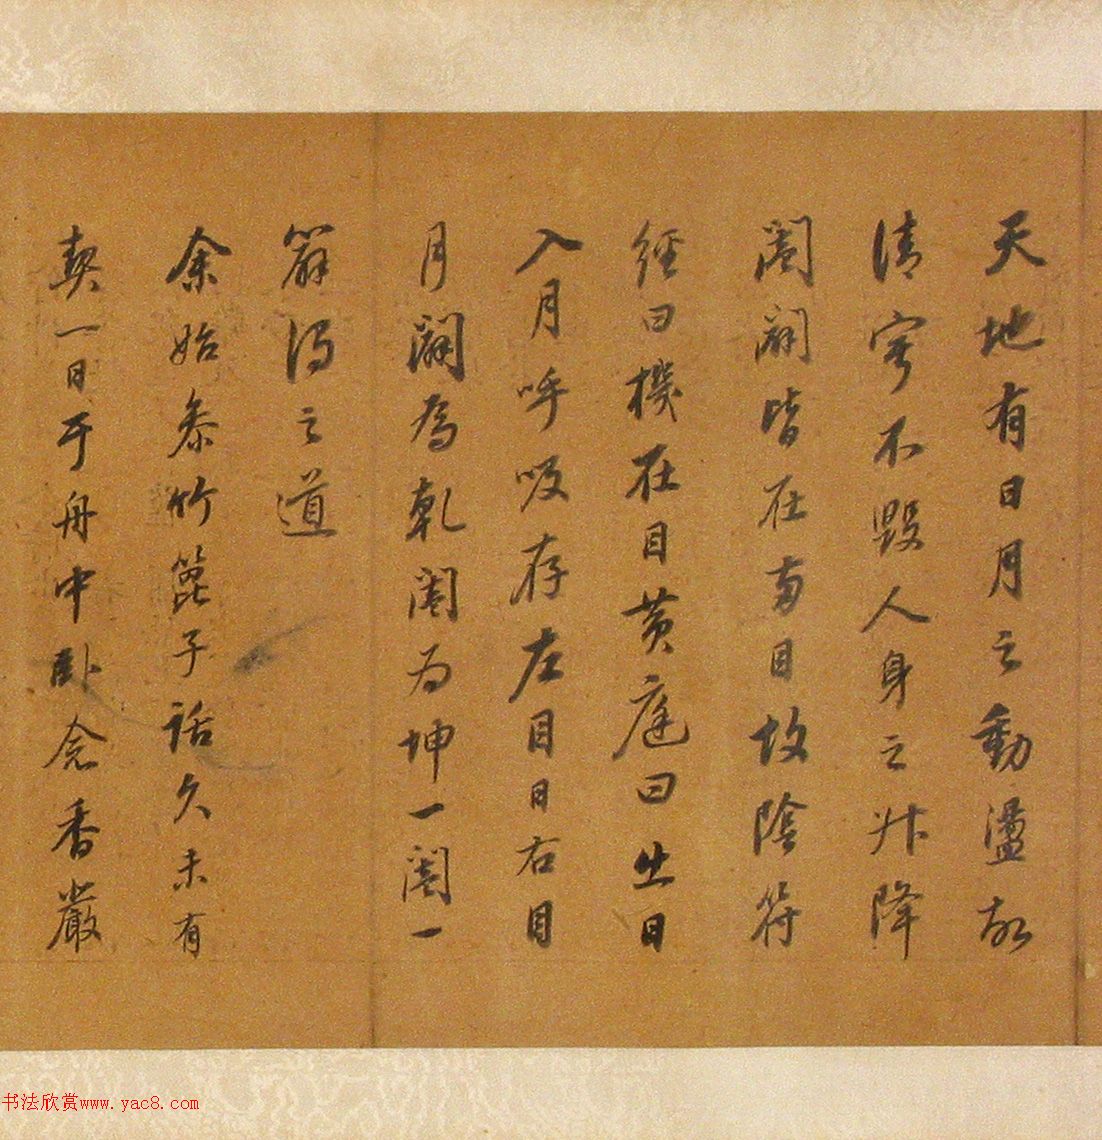 天地有日月之動盪故
清寧不毀人身之升降
闔闢皆在兩目故陰符
經曰機在目黃庭曰出日
入月呼吸存左目日右目
月闢為乾闔为坤一闔一
闢得之道
余始參竹篦子話久未有
契一日于舟中臥念香嚴
书法欣赏www.yac8.com